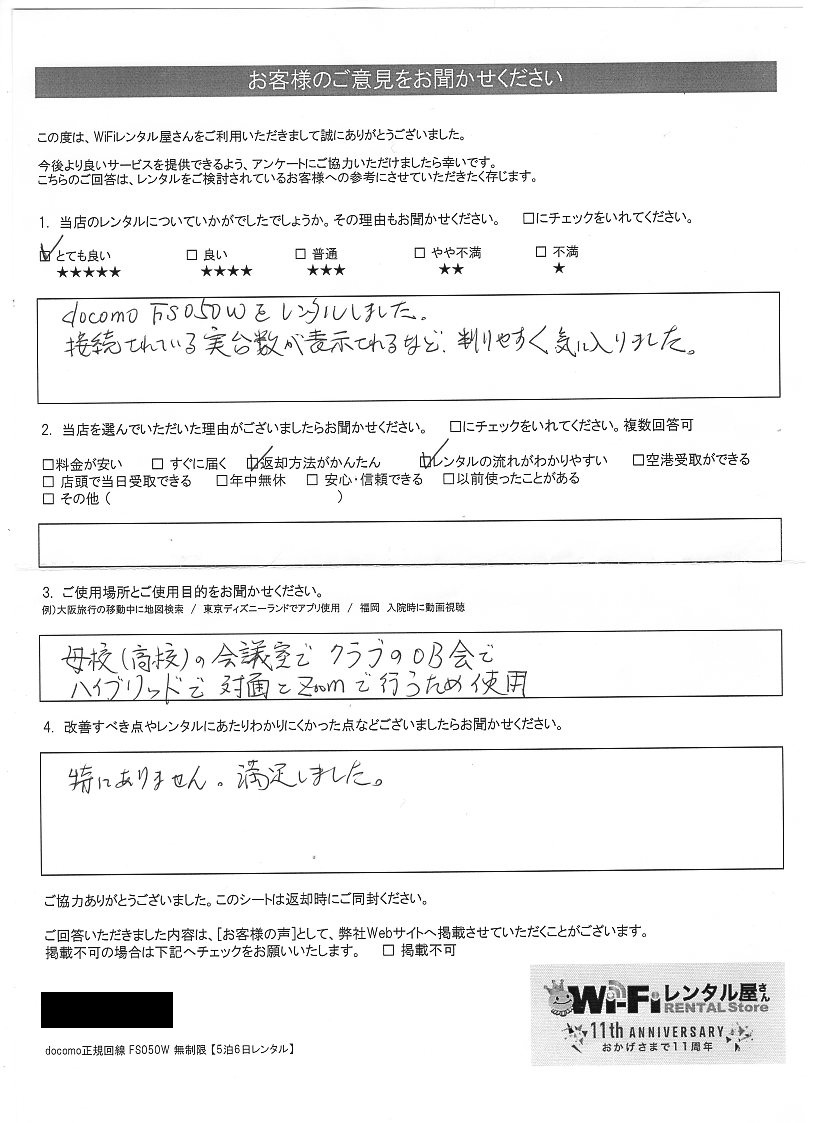 お客様のご意見をお聞かせください
この度は、WiFiレンタル屋さんをご利用いただきまして誠にありがとうございました。
今後より良いサービスを提供できるよう、アンケートにご協力いただけましたら幸いです。
こちらのご回答は、レンタルをご検討されているお客様への参考にさせていただきたく存じます。
1. 当店のレンタルについていかがでしたでしょうか。その理由もお聞かせください。 □にチェックをいれてください。
☑とても良い □ 良い □ 普通 □ やや不満 □ 不満
★★★★★ ★★★★ ★★★ ★★ ★
docomo FS050Wをレンタルしました。
接続されている実台数が表示されるなど、判りやすく気に入りました。
2. 当店を選んでいただいた理由がございましたらお聞かせください。 □にチェックをいれてください。複数回答可
□料金が安い □ すぐに届く ☑返却方法がかんたん ☑レンタルの流れがわかりやすい □空港受取ができる
□ 店頭で当日受取できる □年中無休 □ 安心・信頼できる □以前使ったことがある
□ その他 ( )
3. ご使用場所とご使用目的をお聞かせください。
例)大阪旅行の移動中に地図検索 / 東京ディズニーランドでアプリ使用 / 福岡 入院時に動画視聴
母校(高校)の会議室で クラブのOB会で
ハイブリッドで 対面とZoomで行うため使用
4. 改善すべき点やレンタルにあたりわかりにくかった点などございましたらお聞かせください。
特にありません。満足しました。
ご協力ありがとうございました。このシートは返却時にご同封ください。
ご回答いただきました内容は、[お客様の声]として、弊社Webサイトへ掲載させていただくことがございます。
掲載不可の場合は下記へチェックをお願いいたします。 □ 掲載不可
Wi-Fiレンタル屋さん
RENTAL Store
11th ANNIVERSARY
おかげさまで11周年
docomo正規回線 FS050W 無制限 【5泊6日レンタル】